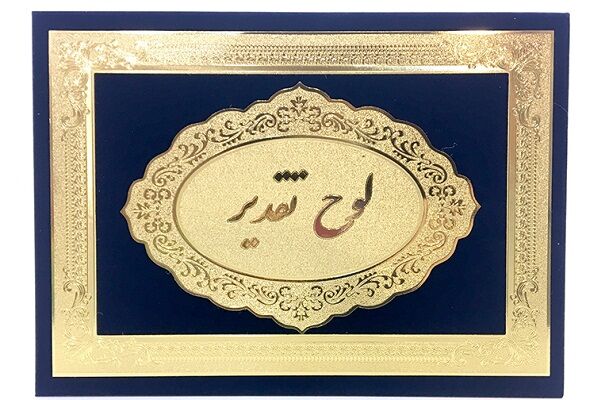 لوح تقدیر